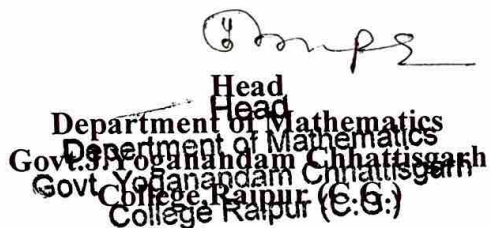 Head
Head
Department of Mathematics
Department of Mathematics
Govt.J.Yoganandam Chhattisgarh
Govt. Yoganandam Chhattisgarh
College,Raipur (C.G.)
College Raipur (C.G.)